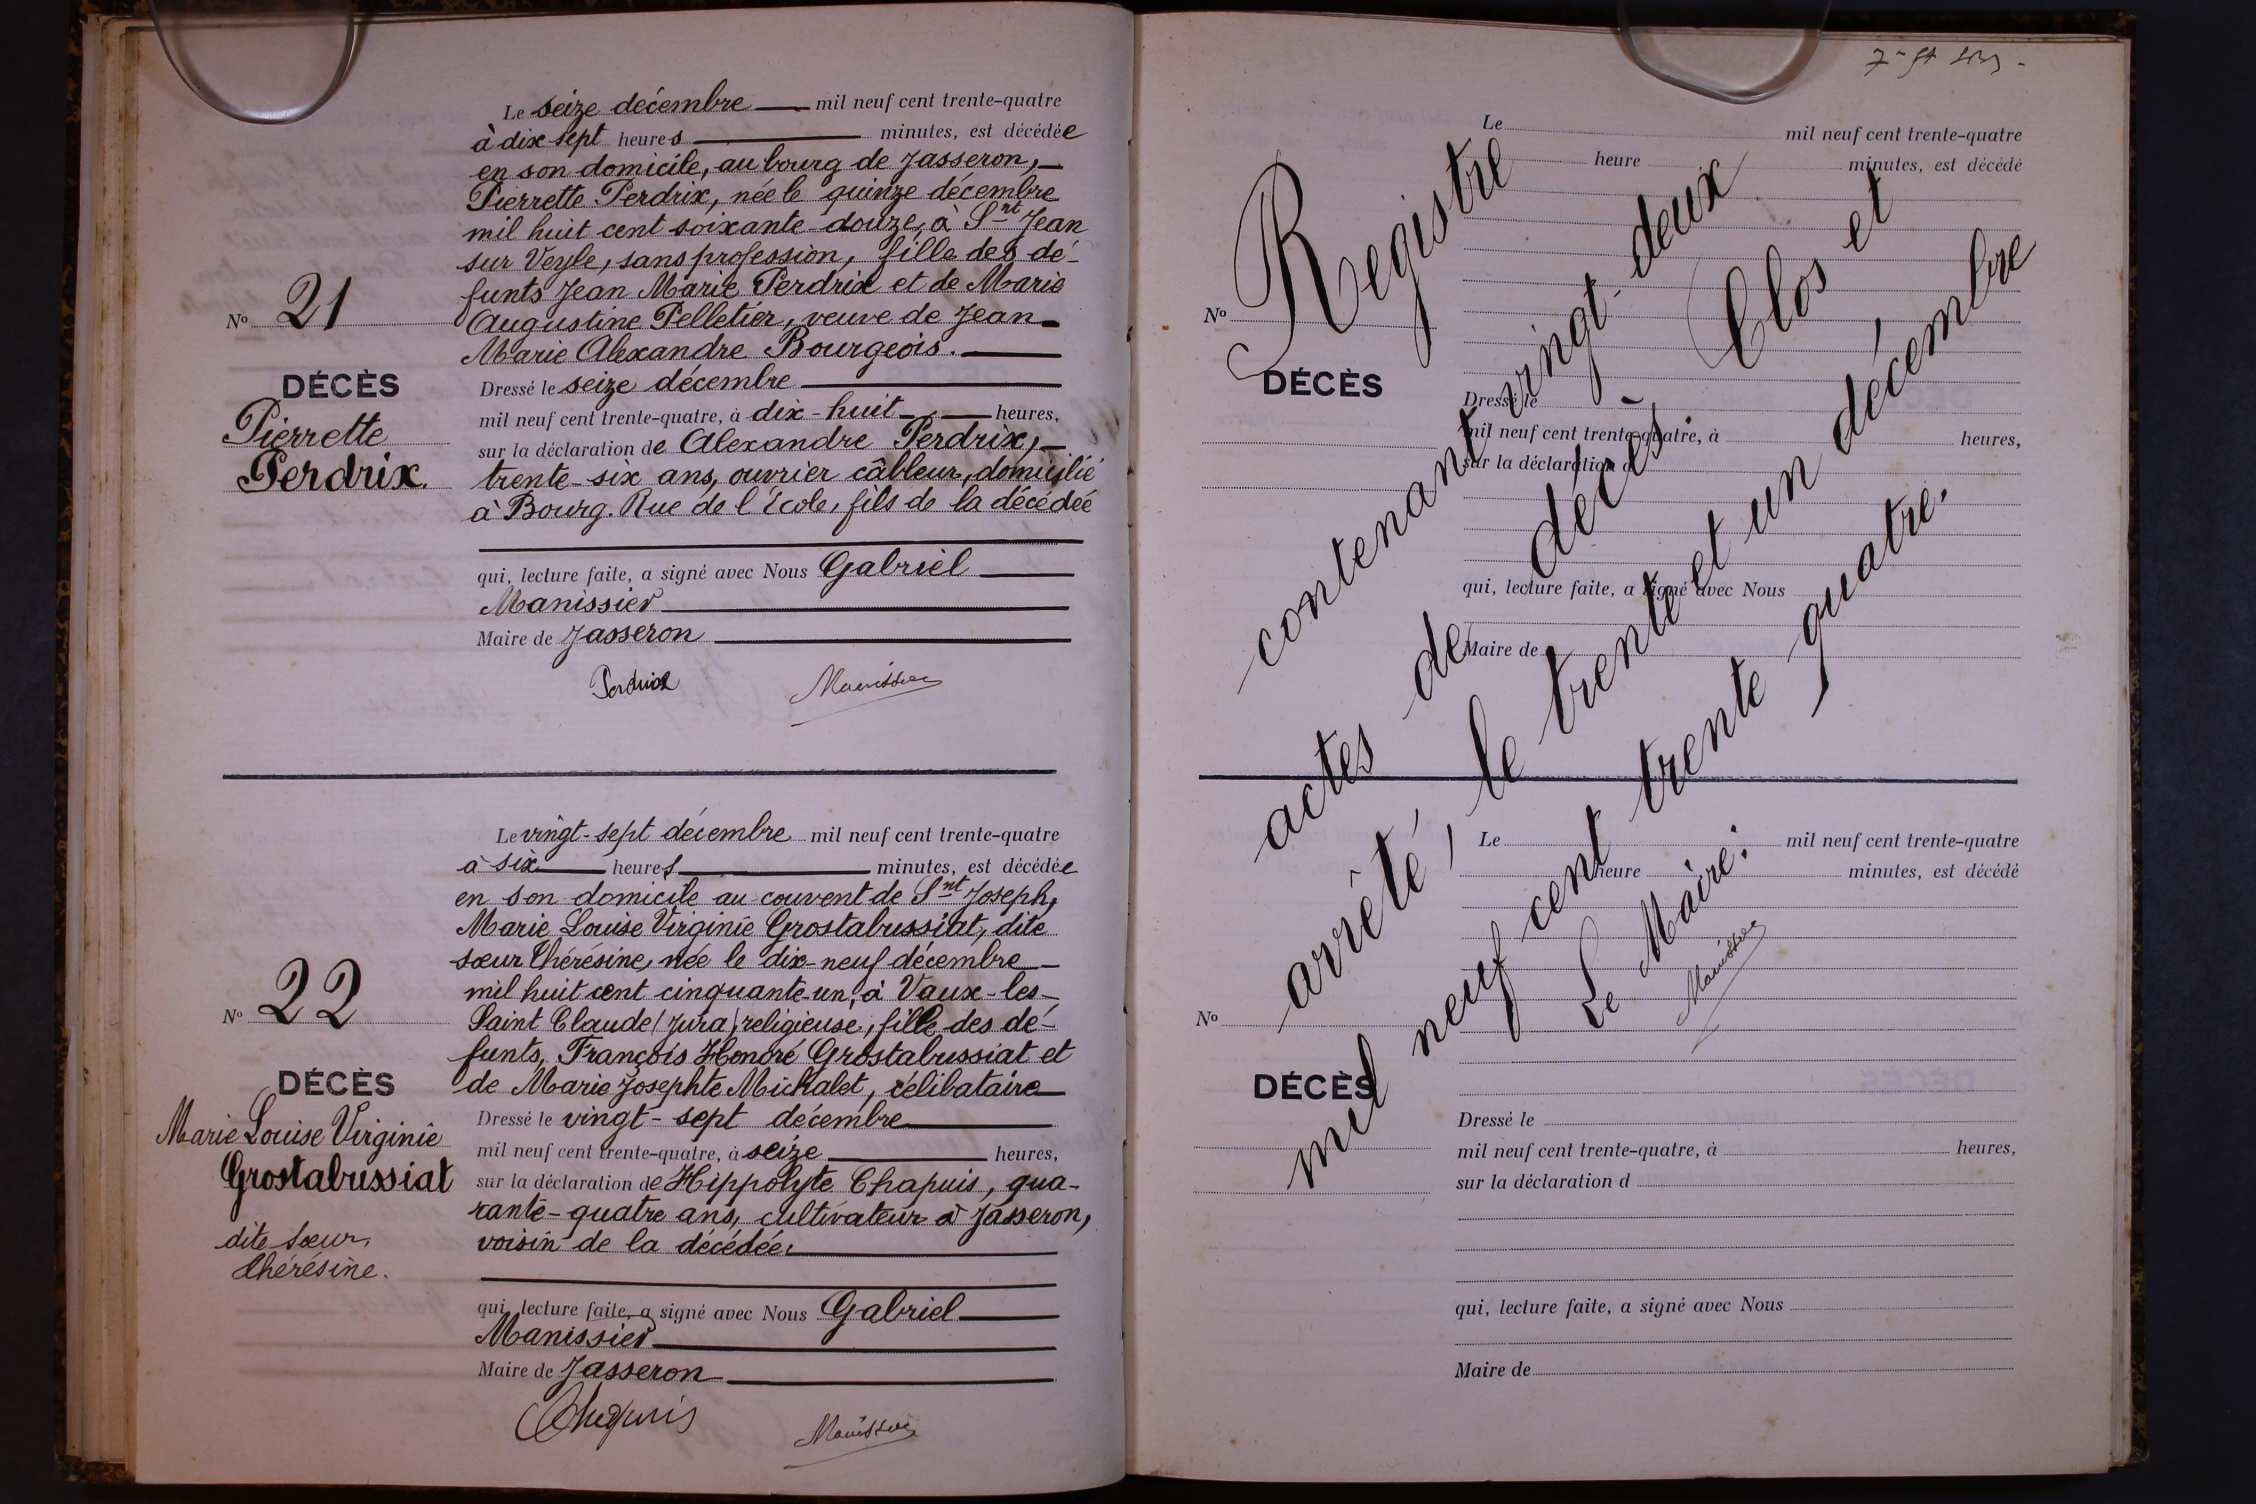 Le seize décembre mil neuf cent trente-quatre
à dix sept heures minutes, est décédée
en son domicile, au bourg de Jasseron,
Pierrette Perdrix, née le quinze décembre
mil huit cent soixante-douze, à Snt Jean
sur Veyle, sans profession, fille des dé-
funts Jean Marie Perdrix et de Marie
Augustine Pelletier, veuve de Jean
Marie Alexandre Bourgeois.
Dressé le seize décembre
mil neuf cent trente-quatre, à dix-huit heures,
sur la déclaration de Alexandre Perdrix,
trente-six ans, ouvrier câbleur, domicilié
à Bourg. Rue de l'École, fils de la décédée
qui, lecture faite, a signé avec Nous Gabriel
Manissier
Maire de Jasseron
Perdrix Manissier
No 21
DÉCÈS
Pierrette
Perdrix.
Le vingt-sept décembre mil neuf cent trente-quatre
à six heures minutes, est décédée
en son domicile au couvent de Snt Joseph,
Marie Louise Virginie Grostabussiat, dite
sœur Thérésine, née le dix-neuf décembre
mil huit cent cinquante-un, à Vaux-les-
Saint Claude (Jura), religieuse, fille des dé-
funts, François Honoré Grostabussiat et
de Marie Josephte Michalet, célibataire
Dressé le vingt-sept décembre
mil neuf cent trente-quatre, à seize heures,
sur la déclaration de Hippolyte Chapuis, qua-
rante-quatre ans, cultivateur à Jasseron,
voisin de la décédée,
qui, lecture faite, a signé avec Nous Gabriel
Manissier
Maire de Jasseron
Chapuis Manissier
No 22
DÉCÈS
Marie Louise Virginie
Grostabussiat
dite sœur
Thérésine.
Le mil neuf cent trente-quatre
heure minutes, est décédé
No
DÉCÈS
Dressé le
mil neuf cent trente-quatre, à heures,
sur la déclaration d
qui, lecture faite, a signé avec Nous
Maire de
Registre
contenant vingt-deux
actes de décès. Clos et
arrêté, le trente et un décembre
mil neuf cent trente quatre.
Le Maire:
Manissier
Le mil neuf cent trente-quatre
heure minutes, est décédé
No
DÉCÈS
Dressé le
mil neuf cent trente-quatre, à heures,
sur la déclaration d
qui, lecture faite, a signé avec Nous
Maire de